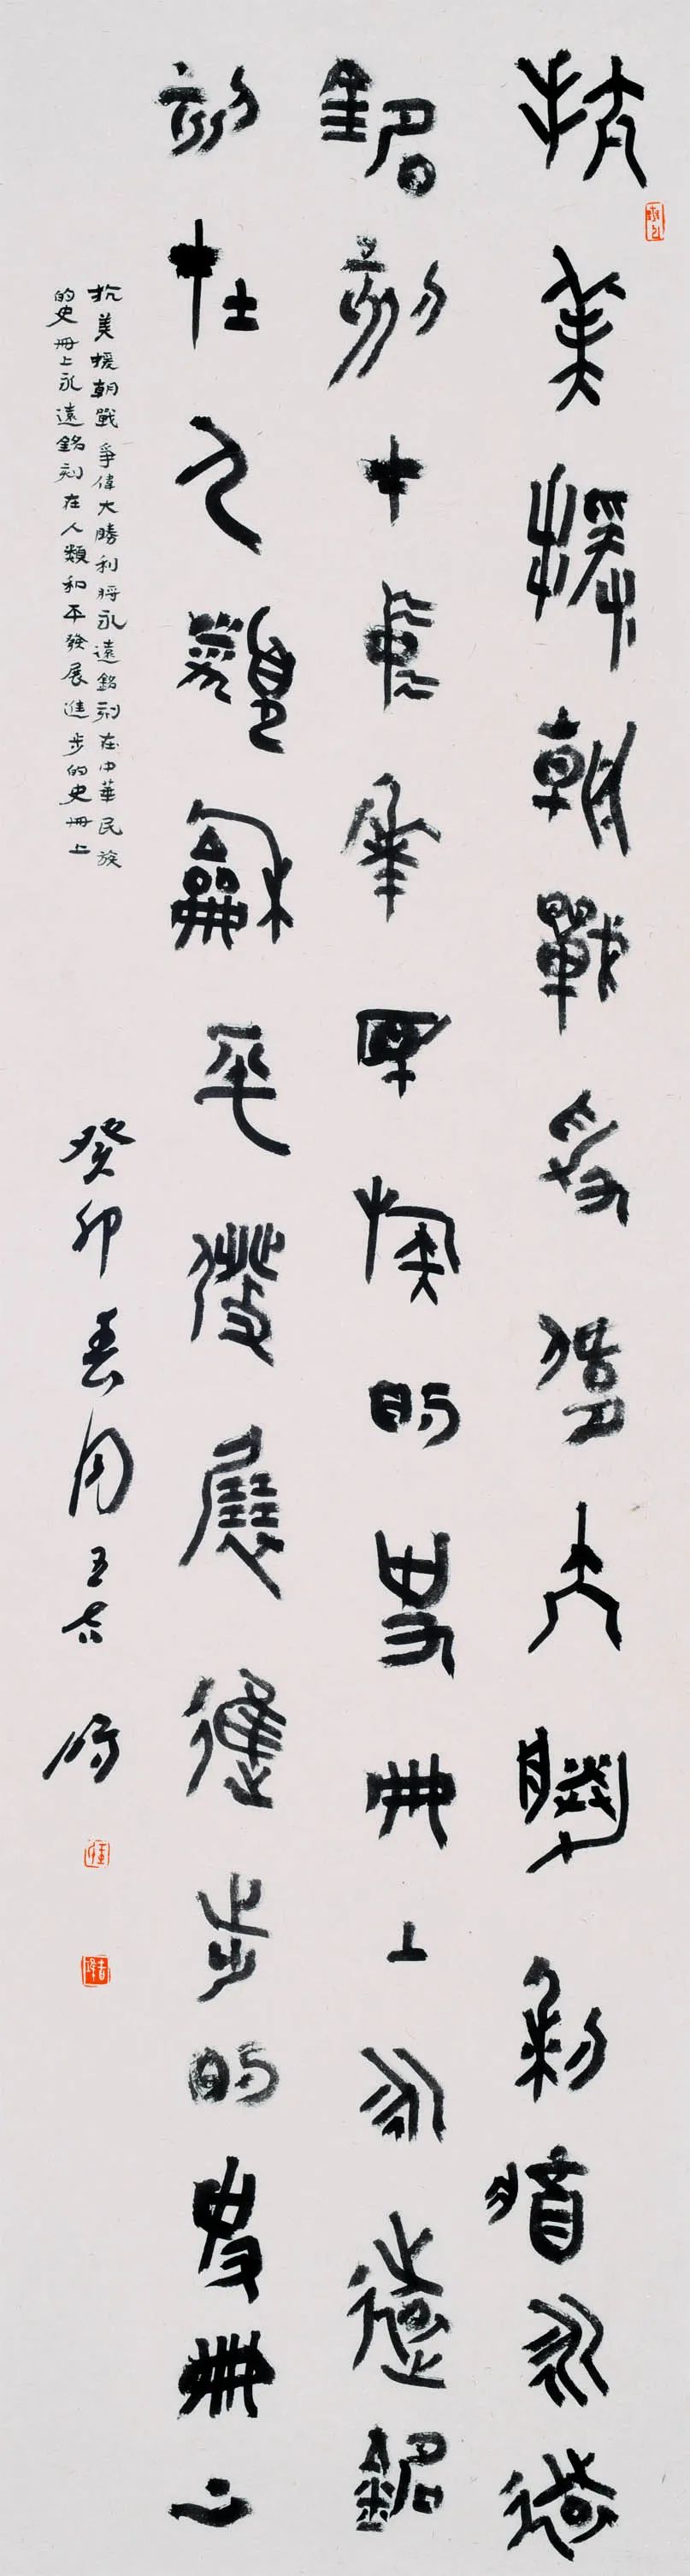 抗美援朝戰爭偉大勝利將永遠
銘刻在中華民族的史冊上永遠銘
刻在人類龢平發展進步的史冊上
抗美援朝戰爭偉大勝利將永遠銘刻在中華民族
的史冊上永遠銘刻在人類和平發展進步的史冊上
癸卯春月